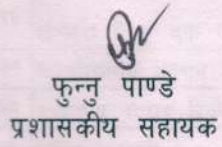 फुन्नु पाण्डे
प्रशासकीय सहायक